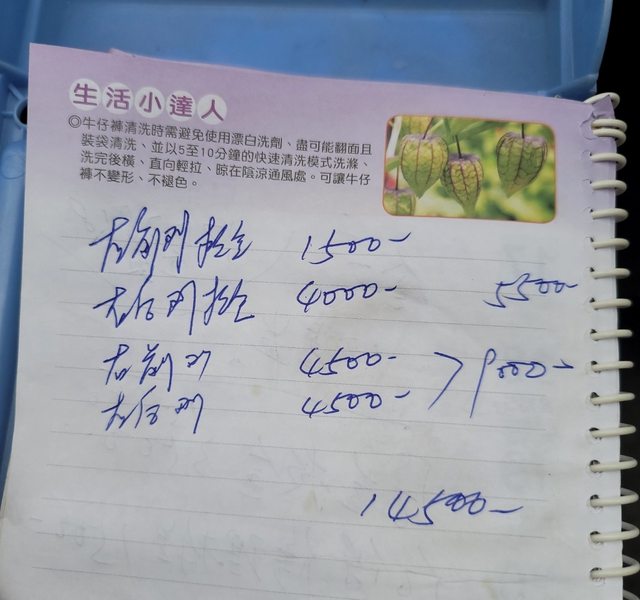 生活小達人
◎牛仔褲清洗時需避免使用漂白洗劑、盡可能翻面且
裝袋清洗、並以5至10分鐘的快速清洗模式洗滌、
洗完後橫、直向輕拉、晾在陰涼通風處。可讓牛仔
褲不變形、不褪色。
1500-
4000- 5500-
右前 4500-
4500- > 9000-
14500-